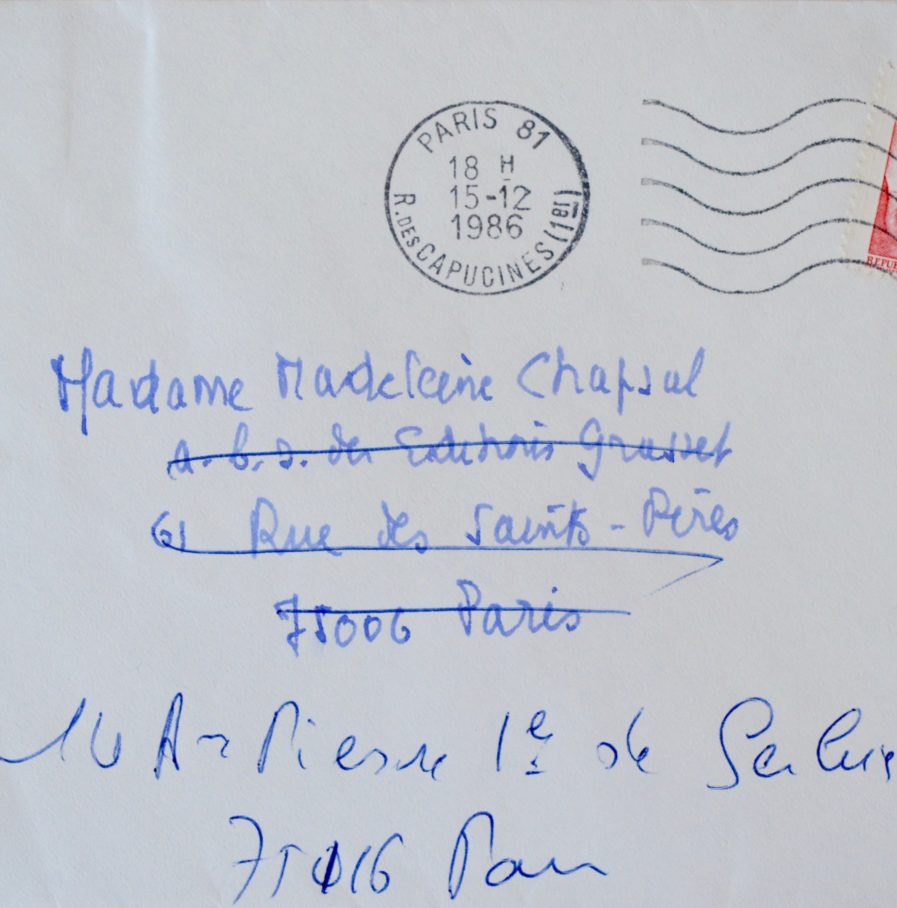 PARIS 81
18 H
15-12
1986
R. DES CAPUCINES (1er)
REPU
Madame Madeleine Chapsal
a. b. s. des Editions Grasset
61 Rue des Saints-Pères
75006 Paris
14 Av Pierre 1er de Serbie
75016 Paris